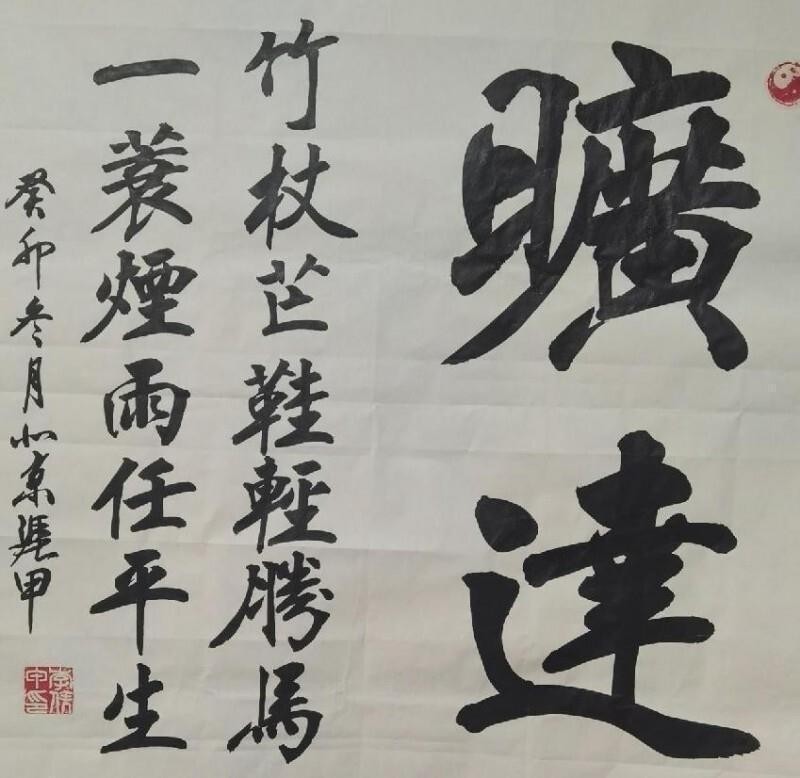 曠達
竹杖芒鞋輕勝馬
一蓑煙雨任平生
癸卯冬月北京 甲